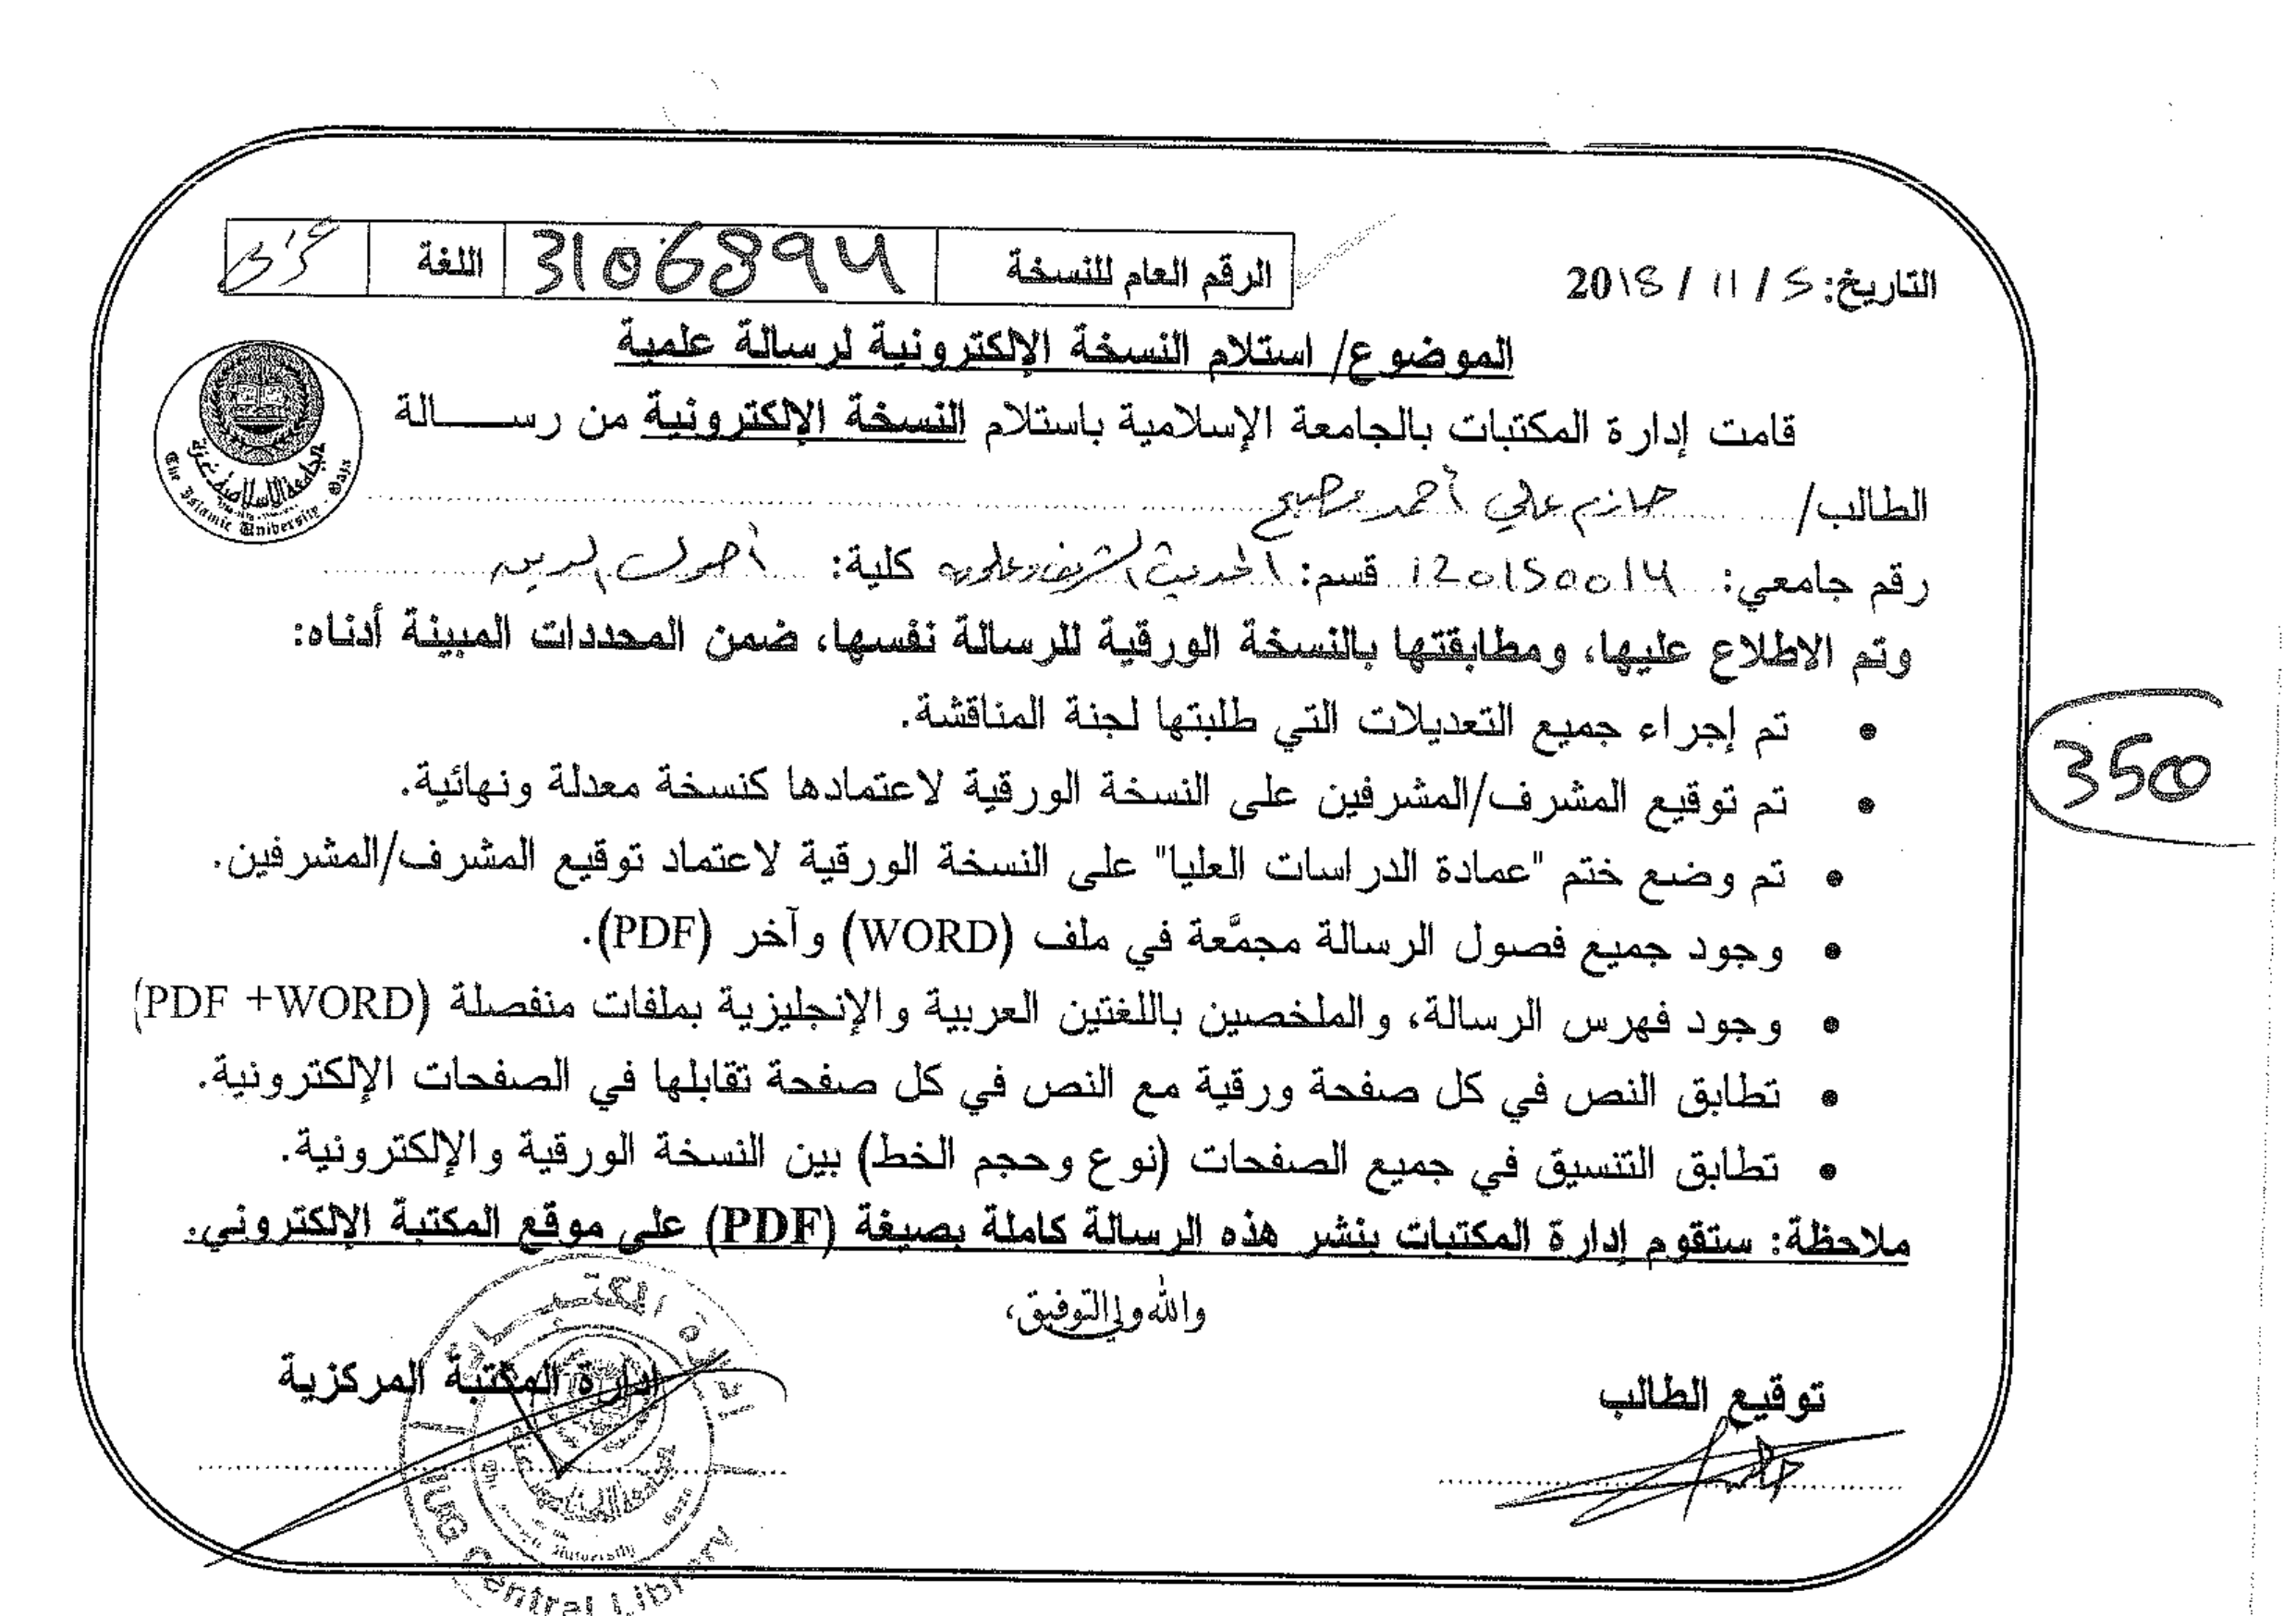 التاريخ: 5 / 11 / 2018
الرقم العام للنسخة 3106894 اللغة عربي
الموضوع/ استلام النسخة الإلكترونية لرسالة علمية
قامت إدارة المكتبات بالجامعة الإسلامية باستلام النسخة الإلكترونية من رســـــالة
الطالب/ حازم علي أحمد مصبح
رقم جامعي: 120150014 قسم: الحديث الشريف وعلومه كلية: أصول الدين
وتم الاطلاع عليها، ومطابقتها بالنسخة الورقية للرسالة نفسها، ضمن المحددات المبينة أدناه:
• تم إجراء جميع التعديلات التي طلبتها لجنة المناقشة.
• تم توقيع المشرف/المشرفين على النسخة الورقية لاعتمادها كنسخة معدلة ونهائية.
• تم وضع ختم "عمادة الدراسات العليا" على النسخة الورقية لاعتماد توقيع المشرف/المشرفين.
• وجود جميع فصول الرسالة مجمَّعة في ملف (WORD) وآخر (PDF).
• وجود فهرس الرسالة، والملخصين باللغتين العربية والإنجليزية بملفات منفصلة (PDF +WORD)
• تطابق النص في كل صفحة ورقية مع النص في كل صفحة تقابلها في الصفحات الإلكترونية.
• تطابق التنسيق في جميع الصفحات (نوع وحجم الخط) بين النسخة الورقية والإلكترونية.
ملاحظة: ستقوم إدارة المكتبات بنشر هذه الرسالة كاملة بصيغة (PDF) على موقع المكتبة الإلكتروني.
والله ولي التوفيق،
توقيع الطالب
إدارة المكتبة المركزية
3500
الجامعة الإسلامية غزة
The Islamic University Gaza
IUG Central Library